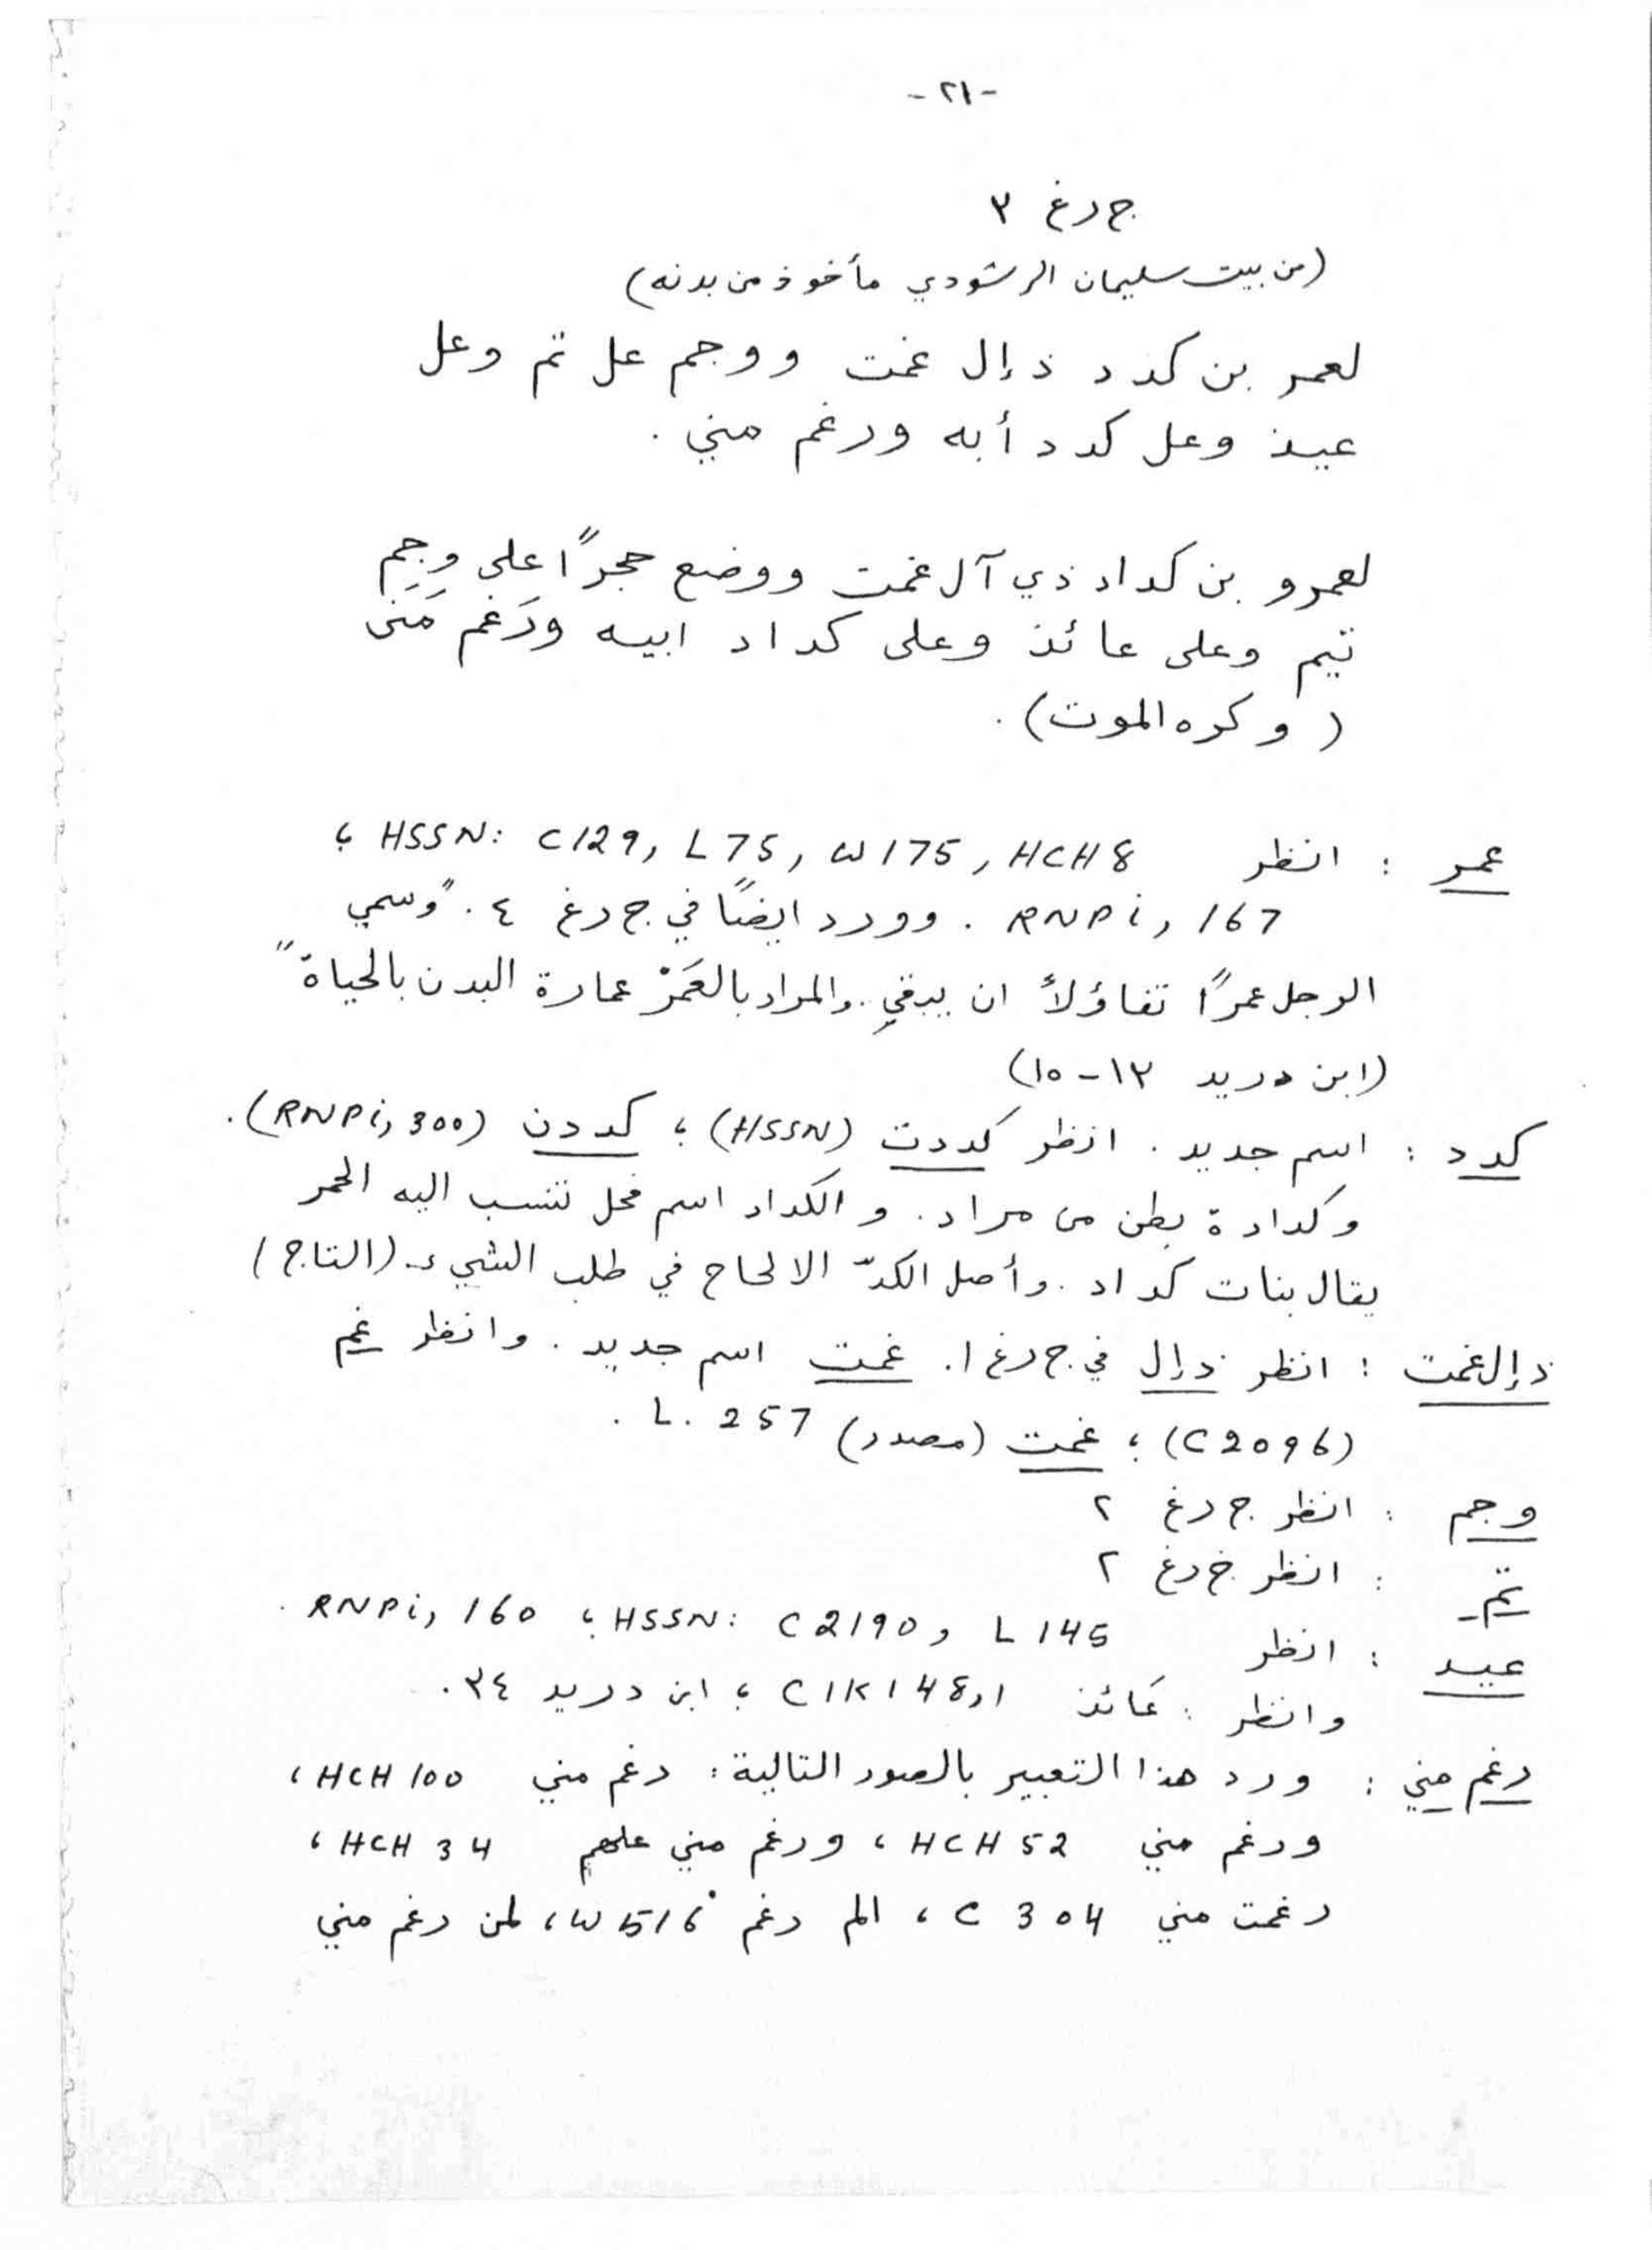 -٢١-
ج رغ ٣
(من بيت سليمان الرشودي مأخوذ من بدنه)
لعمر بن كدد ذإل غمت ووجم عل تم وعل
عيذ وعل كدد أبه ورغم مني .
لعمرو بن كداد ذي آل غمت ووضع حجرًا على وجم
تيم وعلى عائذ وعلى كداد ابيه ورَغم مَنَى
(وكره الموت) .
عمر : انظر HSSN: C129, L75, W175, HCH8 ؛
RNPi, 167 . وورد ايضًا في ج رغ ٤ . "وسمي
الرجل عمرًا تفاؤلاً ان يبقي . والمراد بالعَمْر عمارة البدن بالحياة"
(ابن دريد ١٣-١٥)
كدد : اسم جديد . انظر كددت (HSSN) ؛ كددن (RNPi, 300) .
وكدادة بطن من مراد . والكداد اسم فحل تنسب اليه الحمر
يقال بنات كداد . وأصل الكدّ الالحاح في طلب الشيء . (التاج)
ذإل غمت : انظر ذإل في ج رغ ١ . غمت اسم جديد . وانظر غم
(C2096) ؛ غمت (مصدر) L. 257 .
وجم : انظر ج رغ ٢
تم : انظر ج رغ ٢
عيذ : انظر HSSN: C2190, L145 ؛ RNPi, 160 .
وانظر : عائذ CIK148,1 ؛ ابن دريد ٣٤ .
رغم مني : ورد هذا التعبير بالصور التالية : رغم مني HCH 100 ،
ورغم مني HCH 52 ، ورغم مني علهم HCH 34 ،
رغمت مني C 304 ، الم رغم W516 ، لمن رغم مني